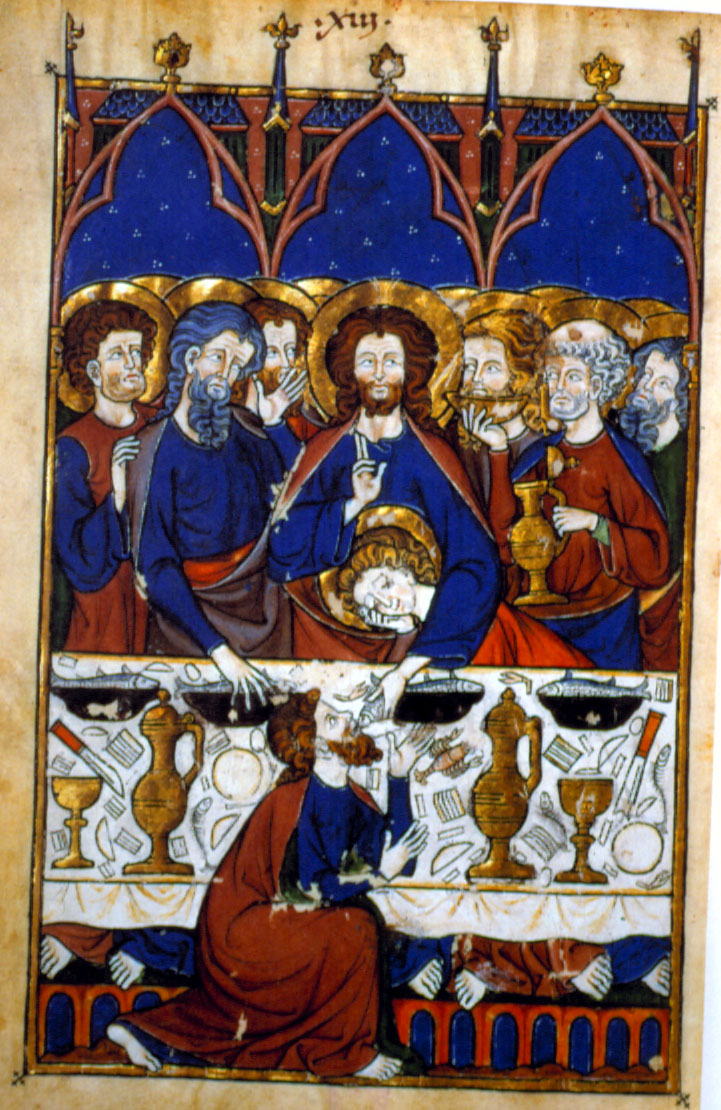 ·xiij·